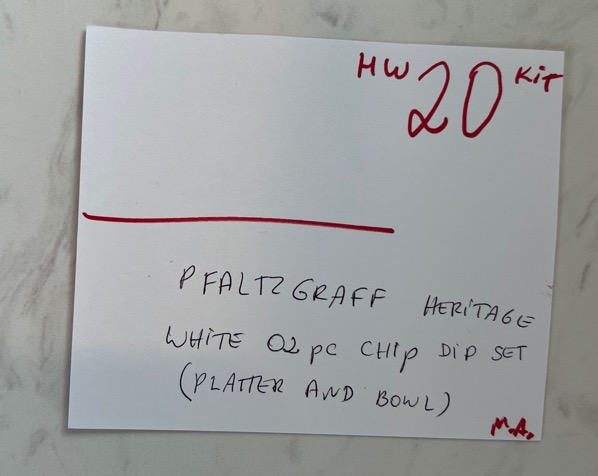 HW 20 KiT
PFALTZGRAFF HERiTAGE
WHiTE 02 pc CHip DiP SET
(PLATTER AND BOWL)
M.A.